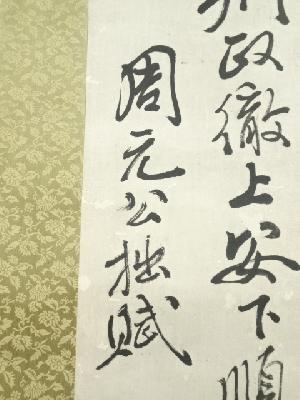 刑政徹上安下順
周元公拙賦